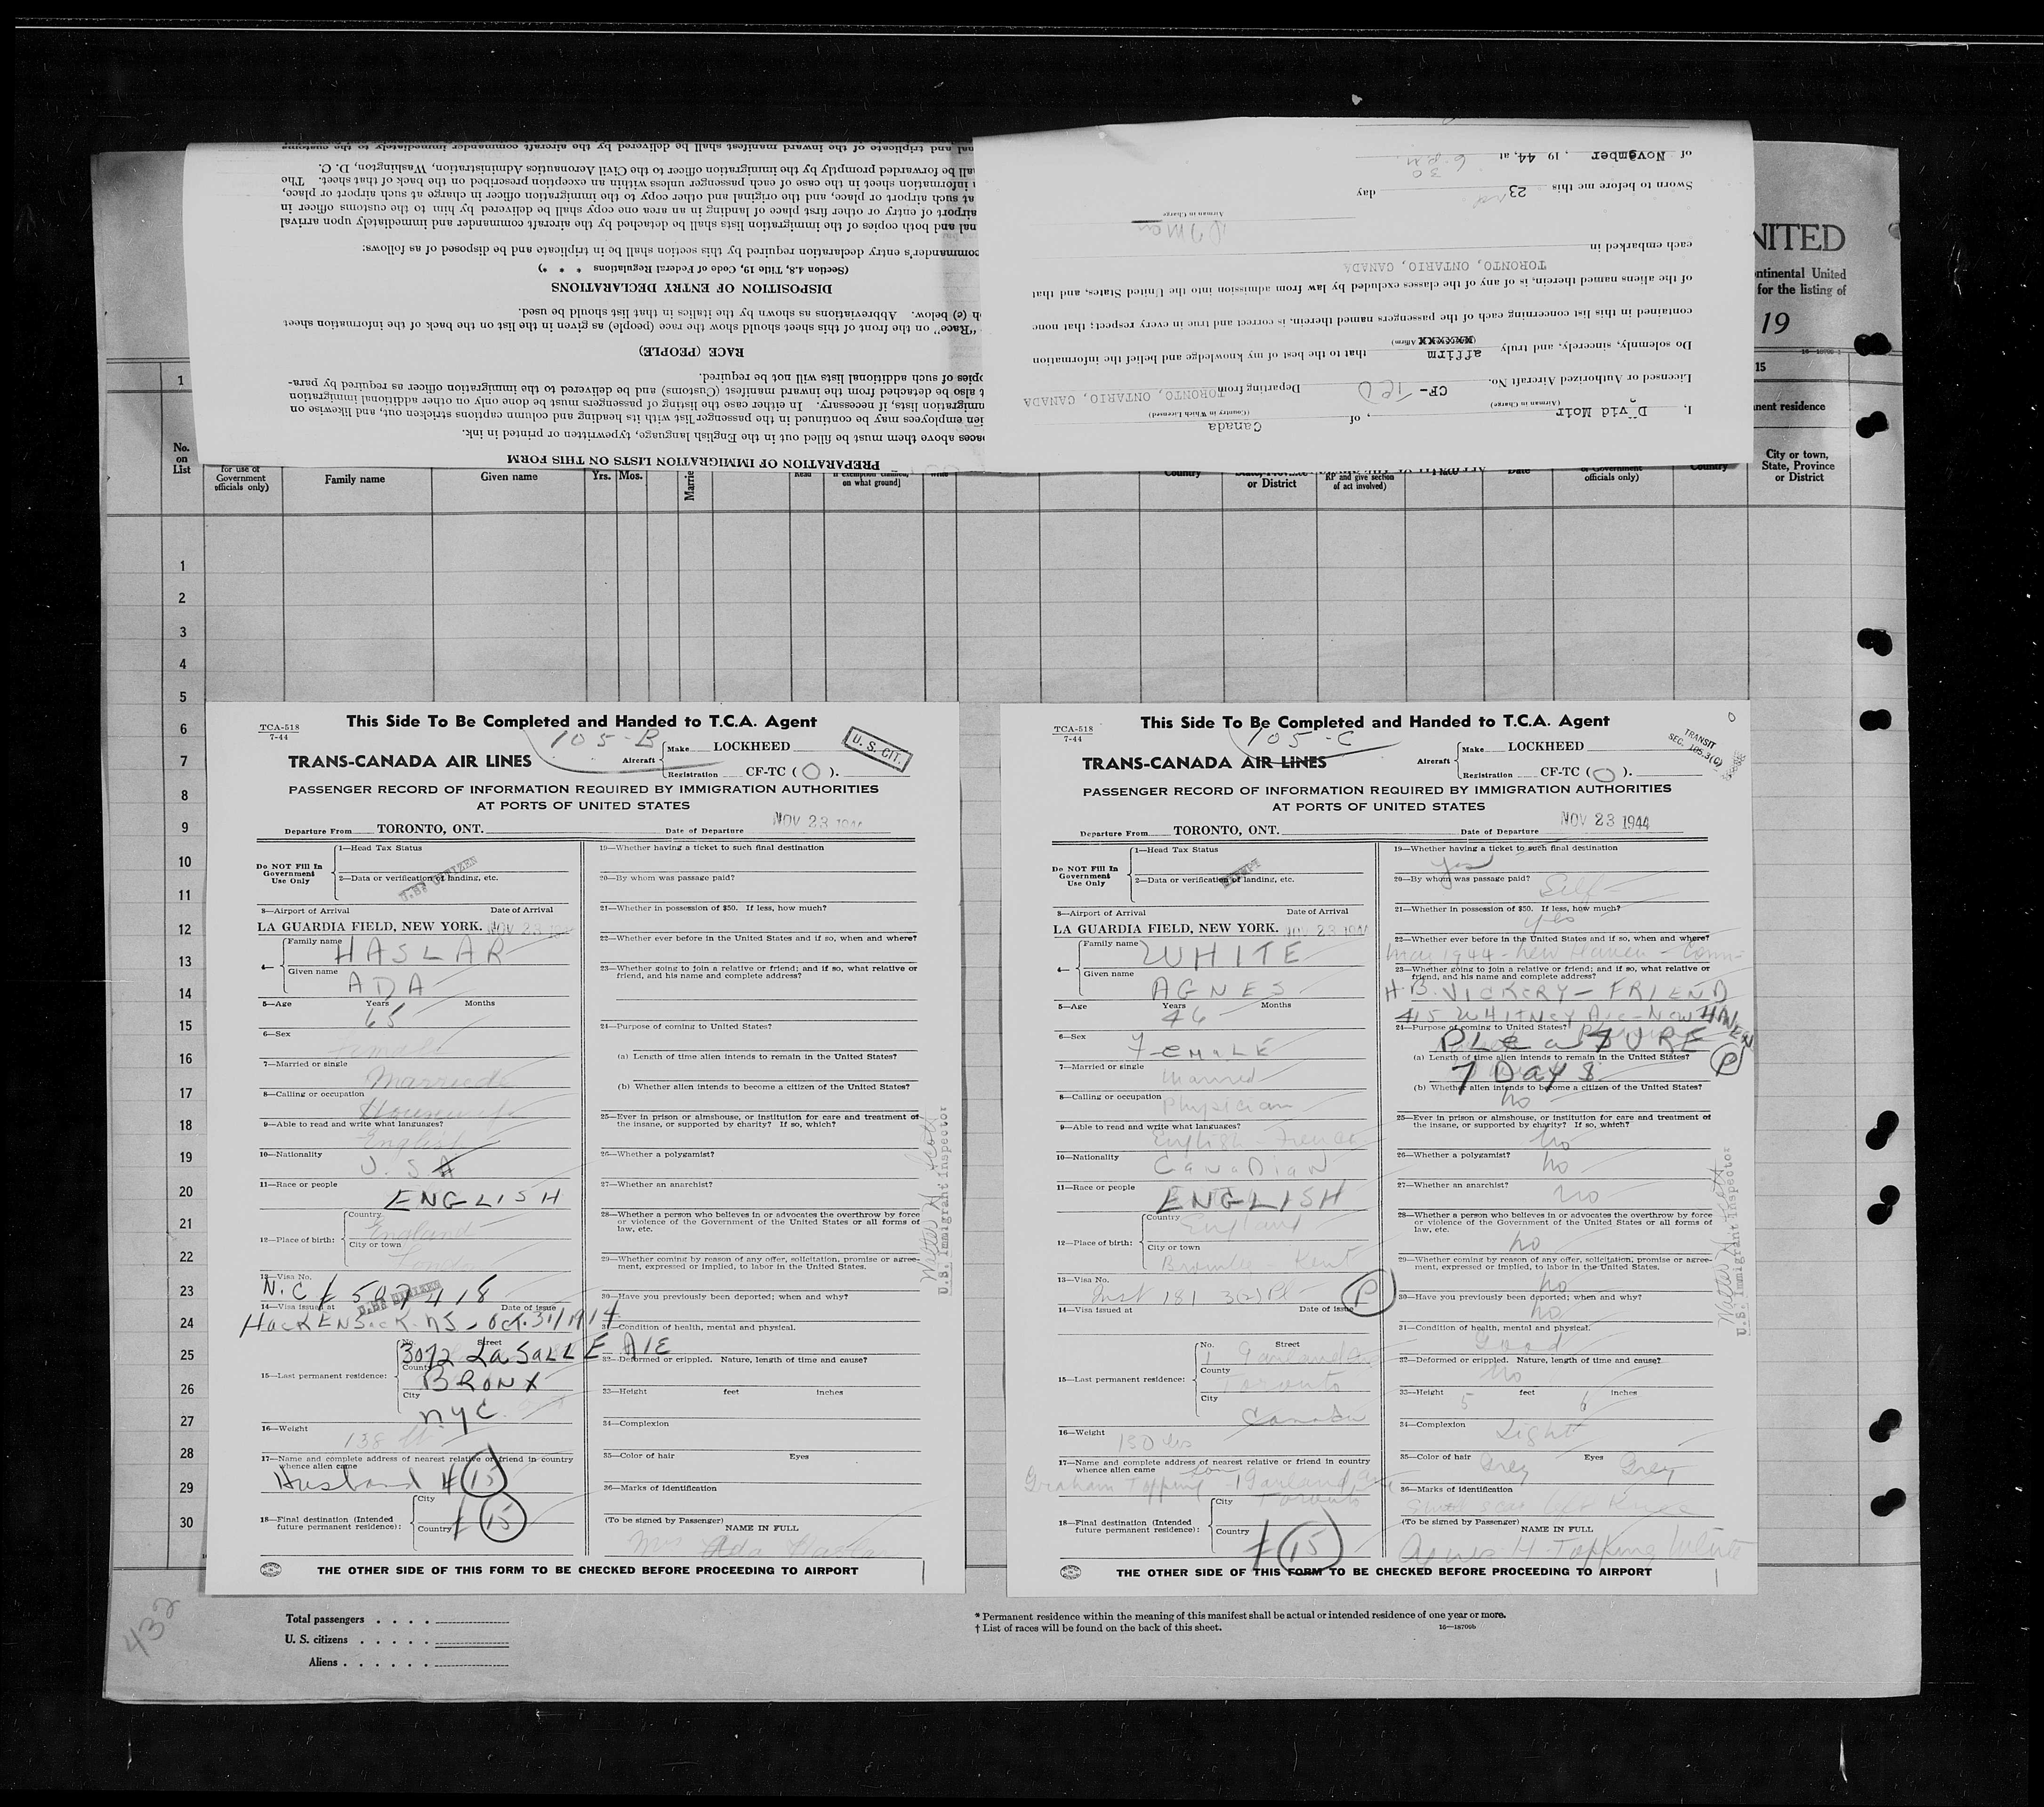 PREPARATION OF IMMIGRATION LISTS ON THIS FORM
aces above them must be filled out in the English language, typewritten or printed in ink.
ien employees may be continued in the passenger list with its heading and column captions stricken out, and likewise on
nmigration lists, if necessary. In either case the listing of passengers must be done only on other additional immigration
t also be detached from the inward manifest (Customs) and be delivered to the immigration officer as required by para-
opies of such additional lists will not be required.
RACE (PEOPLE)
"Race" on the front of this sheet should show the race (people) as given in the list on the back of the information sheet
h (e) below. Abbreviations as shown by the italics in that list should be used.
DISPOSITION OF ENTRY DECLARATIONS
(Section 4.8, Title 19, Code of Federal Regulations * * *)
commander's entry declaration required by this section shall be in triplicate and be disposed of as follows:
nal and both copies of the immigration lists shall be detached by the aircraft commander and immediately upon arrival
airport of entry or other first place of landing in an area one copy shall be delivered by him to the customs officer in
at such airport or place, and the original and other copy to the immigration officer in charge at such airport or place,
information sheet in the case of each passenger unless within an exception prescribed on the back of that sheet. The
all be forwarded promptly by the immigration officer to the Civil Aeronautics Administration, Washington, D. C.
nal and triplicate of the inward manifest shall be delivered by the aircraft commander immediately to the customs
I, David Moir, of Canada
(Airman in Charge) (Country in Which Licensed)
Licensed or Authorized Aircraft No. CF- TCO Departing from TORONTO, ONTARIO, CANADA
Do solemnly, sincerely, and truly affirm that to the best of my knowledge and belief the information
(Affirm)
contained in this list concerning each of the passengers named therein, is correct and true in every respect; that none
of the aliens named therein, is of any of the classes excluded by law from admission into the United States, and that
TORONTO, ONTARIO, CANADA
each embarked in
Airman in Charge
Sworn to before me this 23rd day
of November, 19 44, at 6 30 P.M.
NITED
ontinental United
for the listing of
19
15
nent residence
City or town,
State, Province
or District
1
No.
on
List
for use of
Government
officials only)
Family name
Given name
Yrs. Mos.
on what ground]
Country
or District
RP and give section
of act involved)
Date
officials only)
Country
1
2
3
4
5
6
7
8
9
10
11
12
13
14
15
16
17
18
19
20
21
22
23
24
25
26
27
28
29
30
TCA-518
7-44
This Side To Be Completed and Handed to T.C.A. Agent
105-B
U. S. CIT.
TRANS-CANADA AIR LINES
Aircraft Make LOCKHEED
Registration CF-TC ( O ).
PASSENGER RECORD OF INFORMATION REQUIRED BY IMMIGRATION AUTHORITIES
AT PORTS OF UNITED STATES
Departure From TORONTO, ONT. Date of Departure NOV 23 1944
Do NOT Fill In
Government
Use Only
1—Head Tax Status
2—Data or verification of landing, etc.
U.S. CITIZEN
3—Airport of Arrival Date of Arrival
LA GUARDIA FIELD, NEW YORK. NOV 23 1944
4— Family name HASLAR
Given name ADA
5—Age Years 65 Months
6—Sex Female
7—Married or single Married
8—Calling or occupation Housewife
9—Able to read and write what languages? English
10—Nationality U.S.A
11—Race or people ENGLISH
12—Place of birth: Country England
City or town London
13—Visa No. N.C # 507418
U.S. CITIZEN
14—Visa issued at Date of issue
HACKENSACK. NJ - OCT. 31/1914
15—Last permanent residence: No. Street 3072 LASALLE AVE
County BRONX
City NYC
16—Weight 138 lb
17—Name and complete address of nearest relative or friend in country
whence alien came
Husband # 15
18—Final destination (Intended
future permanent residence): City
Country # 15
19—Whether having a ticket to such final destination
20—By whom was passage paid?
21—Whether in possession of $50. If less, how much?
22—Whether ever before in the United States and if so, when and where?
23—Whether going to join a relative or friend; and if so, what relative or
friend, and his name and complete address?
24—Purpose of coming to United States?
(a) Length of time alien intends to remain in the United States?
(b) Whether alien intends to become a citizen of the United States?
25—Ever in prison or almshouse, or institution for care and treatment of
the insane, or supported by charity? If so, which?
26—Whether a polygamist?
27—Whether an anarchist?
28—Whether a person who believes in or advocates the overthrow by force
or violence of the Government of the United States or all forms of
law, etc.
29—Whether coming by reason of any offer, solicitation, promise or agree-
ment, expressed or implied, to labor in the United States.
30—Have you previously been deported; when and why?
31—Condition of health, mental and physical.
32—Deformed or crippled. Nature, length of time and cause?
33—Height feet inches
34—Complexion
35—Color of hair Eyes
36—Marks of identification
(To be signed by Passenger) NAME IN FULL
Mrs Ada Haslar
Walter H. Scott
U.S. Immigrant Inspector
THE OTHER SIDE OF THIS FORM TO BE CHECKED BEFORE PROCEEDING TO AIRPORT
TCA-518
7-44
This Side To Be Completed and Handed to T.C.A. Agent
105-C
TRANSIT
SEC. 105.3(C)
TRANS-CANADA AIR LINES
Aircraft Make LOCKHEED
Registration CF-TC ( O ).
PASSENGER RECORD OF INFORMATION REQUIRED BY IMMIGRATION AUTHORITIES
AT PORTS OF UNITED STATES
Departure From TORONTO, ONT. Date of Departure NOV 23 1944
Do NOT Fill In
Government
Use Only
1—Head Tax Status
2—Data or verification of landing, etc.
3—Airport of Arrival Date of Arrival
LA GUARDIA FIELD, NEW YORK. NOV 23 1944
4— Family name WHITE
Given name AGNES
5—Age Years 46 Months
6—Sex FEMALE
7—Married or single Married
8—Calling or occupation Physician
9—Able to read and write what languages? English - French
10—Nationality CANADIAN
11—Race or people ENGLISH
12—Place of birth: Country England
City or town Bromley Kent
13—Visa No. Inst 181 3(2) Pl P
14—Visa issued at Date of issue
15—Last permanent residence: No. Street 1 Garland Ave
County Toronto
City Canada
16—Weight 130 lbs
17—Name and complete address of nearest relative or friend in country
whence alien came son
Graham Topping 1 Garland Ave
18—Final destination (Intended
future permanent residence): City Toronto
Country # 15
19—Whether having a ticket to such final destination
Yes
20—By whom was passage paid? Self
21—Whether in possession of $50. If less, how much?
Yes
22—Whether ever before in the United States and if so, when and where?
May 1944 - New Haven - Conn-
23—Whether going to join a relative or friend; and if so, what relative or
friend, and his name and complete address?
H.B. VICKERY - FRIEND
415 WHITNEY AVE - NEW HAVEN
24—Purpose of coming to United States?
PLEASURE P
(a) Length of time alien intends to remain in the United States?
7 DAYS
(b) Whether alien intends to become a citizen of the United States?
No
25—Ever in prison or almshouse, or institution for care and treatment of
the insane, or supported by charity? If so, which?
No
26—Whether a polygamist? No
27—Whether an anarchist? No
28—Whether a person who believes in or advocates the overthrow by force
or violence of the Government of the United States or all forms of
law, etc. No
29—Whether coming by reason of any offer, solicitation, promise or agree-
ment, expressed or implied, to labor in the United States.
No
30—Have you previously been deported; when and why?
No
31—Condition of health, mental and physical.
Good
32—Deformed or crippled. Nature, length of time and cause?
No
33—Height 5 feet 6 inches
34—Complexion Light
35—Color of hair Grey Eyes Grey
36—Marks of identification
Small scar left Knee
(To be signed by Passenger) NAME IN FULL
Agnes H. Topping White
Walter H. Scott
U.S. Immigrant Inspector
THE OTHER SIDE OF THIS FORM TO BE CHECKED BEFORE PROCEEDING TO AIRPORT
432
Total passengers . . . .
U. S. citizens . . . . .
Aliens . . . . . .
* Permanent residence within the meaning of this manifest shall be actual or intended residence of one year or more.
† List of races will be found on the back of this sheet. 16—18700b